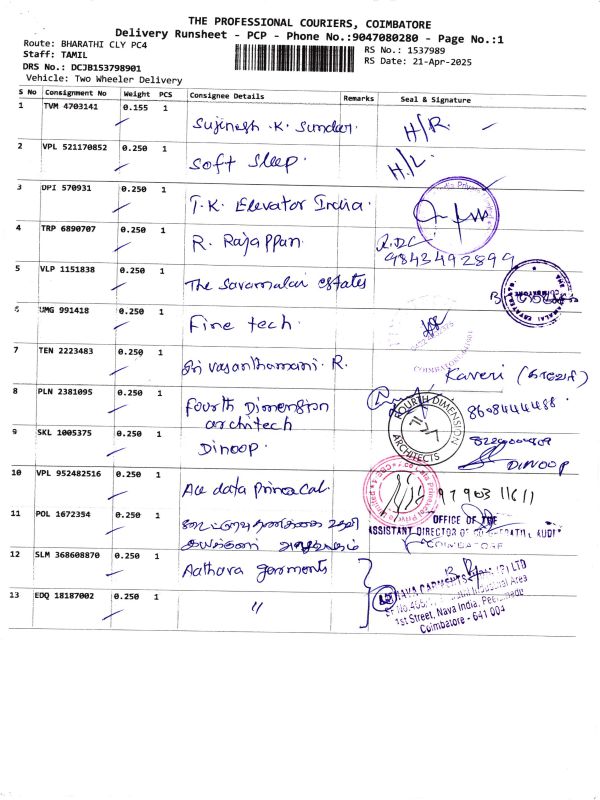 THE PROFESSIONAL COURIERS, COIMBATORE
Delivery Runsheet - PCP - Phone No.:9047080280 - Page No.:1
Route: BHARATHI CLY PC4 RS No.: 1537989
Staff: TAMIL RS Date: 21-Apr-2025
DRS No.: DCJB153798901
Vehicle: Two Wheeler Delivery
S No Consignment No Weight PCS Consignee Details Remarks Seal & Signature
1 TVM 4703141 0.155 1 Sujinesh .K. Sundar. H/R.
2 VPL 521170852 0.250 1 Soft Sleep. H/L.
3 DPI 570931 0.250 1 T.K. Elevator India.
4 TRP 6890707 0.250 1 R. Rajappan 9843492899
5 VLP 1151838 0.250 1 The Savamalai estates
6 UMG 991418 0.250 1 Fine tech.
7 TEN 2223483 0.250 1 Sri vasanthamani. R. Kaveri
8 PLN 2381095 0.250 1 Fourth Dimension
architech 8608444488
FOURTH DIMENSION ARCHITECTS
9 SKL 1005375 0.250 1 Dinoop. DINOOP
10 VPL 952482516 0.250 1 Ace data Princacal. 97903 11611
11 POL 1672354 0.250 1
OFFICE OF THE
ASSISTANT DIRECTOR OF AUDIT
COIMBATORE
12 SLM 368608870 0.250 1 Aathava garments
GARMENTS (P) LTD
Industrial Area
1st Street, Nava India,
Coimbatore - 641 004
13 EDQ 18187002 0.250 1 "